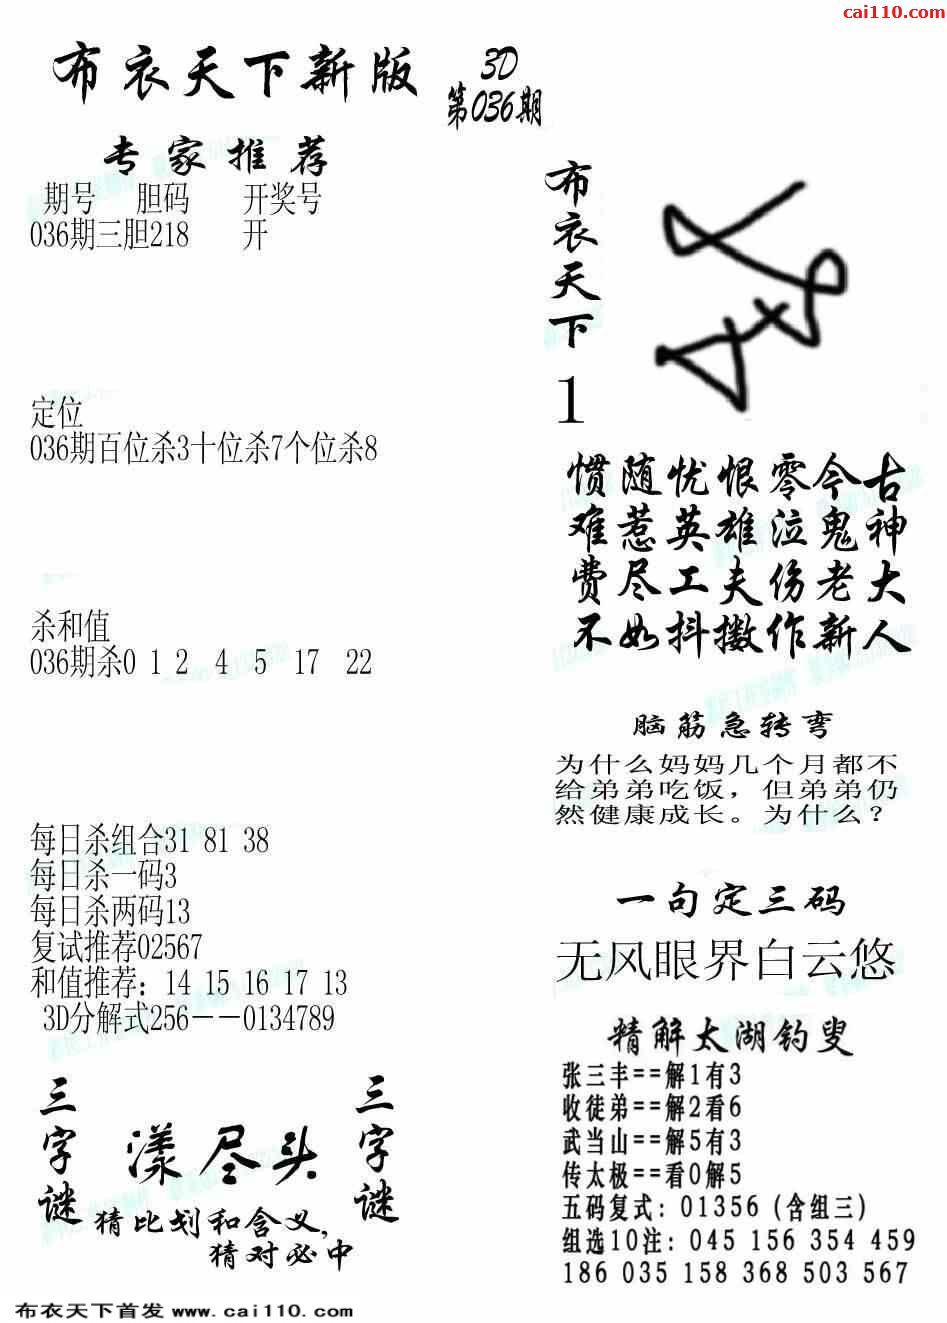 cai110.com
布衣天下新版
3D
第036期
专家推荐
期号 胆码 开奖号
036期三胆218 开
定位
036期百位杀3十位杀7个位杀8
杀和值
036期杀0 1 2 4 5 17 22
每日杀组合31 81 38
每日杀一码3
每日杀两码13
复试推荐02567
和值推荐：14 15 16 17 13
3D分解式256－－0134789
三字谜
漾尽头
三字谜
猜比划和含义，
猜对必中
布衣天下
1
惯随忧恨零今古
难惹英雄泣鬼神
费尽工夫伤老大
不如抖擞作新人
脑筋急转弯
为什么妈妈几个月都不
给弟弟吃饭，但弟弟仍
然健康成长。为什么？
一句定三码
无风眼界白云悠
精解太湖钓叟
张三丰==解1有3
收徒弟==解2看6
武当山==解5有3
传太极==看0解5
五码复式：01356（含组三）
组选10注：045 156 354 459
186 035 158 368 503 567
布衣天下首发 www.cai110.com